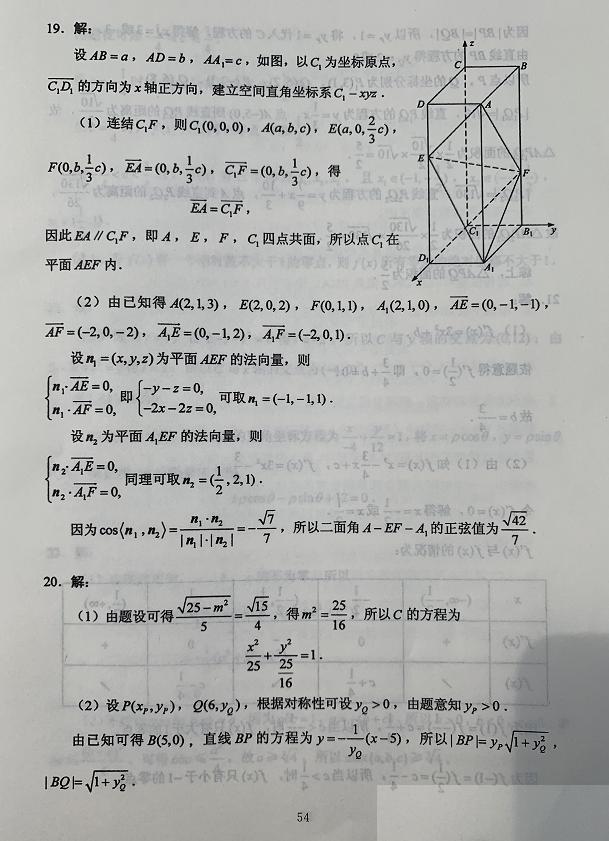 19. 解:
设 AB = a, AD = b, AA₁= c, 如图, 以 C₁ 为坐标原点,
$\overrightarrow{C_1D_1}$ 的方向为 x 轴正方向, 建立空间直角坐标系 C₁ - xyz.
(1) 连结 C₁F, 则 C₁(0,0,0), A(a,b,c), $E(a,0,\frac{2}{3}c)$,
$F(0,b,\frac{1}{3}c)$, $\overrightarrow{EA}=(0,b,\frac{1}{3}c)$, $\overrightarrow{C_1F}=(0,b,\frac{1}{3}c)$, 得
$\overrightarrow{EA}=\overrightarrow{C_1F}$,
因此 EA // C₁F, 即 A, E, F, C₁ 四点共面, 所以点 C₁ 在
平面 AEF 内.
z
C
B
D
A
E
F
C₁
B₁
y
D₁
A₁
x
(2) 由已知得 A(2,1,3), E(2,0,2), F(0,1,1), A₁(2,1,0), $\overrightarrow{AE}=(0,-1,-1)$,
$\overrightarrow{AF}=(-2,0,-2)$, $\overrightarrow{A_1E}=(0,-1,2)$, $\overrightarrow{A_1F}=(-2,0,1)$.
设 n₁ = (x,y,z) 为平面 AEF 的法向量, 则
$\begin{cases} n_1\cdot\overrightarrow{AE}=0, \\ n_1\cdot\overrightarrow{AF}=0, \end{cases}$ 即 $\begin{cases} -y-z=0, \\ -2x-2z=0, \end{cases}$ 可取 n₁ = (-1,-1,1).
设 n₂ 为平面 A₁EF 的法向量, 则
$\begin{cases} n_2\cdot\overrightarrow{A_1E}=0, \\ n_2\cdot\overrightarrow{A_1F}=0, \end{cases}$ 同理可取 $n_2=(\frac{1}{2},2,1)$.
因为 $\cos\langle n_1,n_2\rangle=\frac{n_1\cdot n_2}{|n_1|\cdot|n_2|}=-\frac{\sqrt{7}}{7}$, 所以二面角 A - EF - A₁ 的正弦值为 $\frac{\sqrt{42}}{7}$.
20. 解:
(1) 由题设可得 $\frac{\sqrt{25-m^2}}{5}=\frac{\sqrt{15}}{4}$, 得 $m^2=\frac{25}{16}$, 所以 C 的方程为
$\frac{x^2}{25}+\frac{y^2}{\frac{25}{16}}=1$.
(2) 设 $P(x_P,y_P)$, $Q(6,y_Q)$, 根据对称性可设 $y_Q>0$, 由题意知 $y_P>0$.
由已知可得 B(5,0), 直线 BP 的方程为 $y=-\frac{1}{y_Q}(x-5)$, 所以 $|BP|=y_P\sqrt{1+y_Q^2}$,
$|BQ|=\sqrt{1+y_Q^2}$.
54